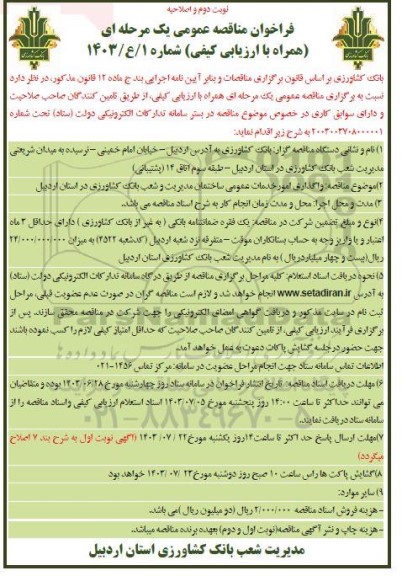 نوبت دوم و اصلاحیه
فراخوان مناقصه عمومی یک مرحله ای
(همراه با ارزیابی کیفی) شماره ۱/ع/۱۴۰۳
بانک کشاورزی بر اساس قانون برگزاری مناقصات و بنابر آیین نامه اجرایی بند ج ماده ۱۲ قانون مذکور، در نظر دارد
نسبت به برگزاری مناقصه عمومی یک مرحله ای همراه با ارزیابی کیفی، از طریق تامین کنندگان صاحب صلاحیت
و دارای سوابق کاری در خصوص موضوع مناقصه در بستر سامانه تدارکات الکترونیکی دولت (ستاد) تحت شماره
۲۰۰۳۰۰۳۷۰۸۰۰۰۰۰۱ به شرح زیر اقدام نماید:
۱)نام و نشانی دستگاه مناقصه گزار: بانک کشاورزی به آدرس اردبیل – خیابان امام خمینی – نرسیده به میدان شریعتی
مدیریت شعب بانک کشاورزی در استان اردبیل – طبقه سوم اتاق ۱۴ (پشتیبانی)
۲)موضوع مناقصه: واگذاری امور خدمات عمومی ساختمان مدیریت و شعب بانک کشاورزی در استان اردبیل
۳)مدت و محل اجرا: محل و مدت زمان انجام کار به شرح اسناد مناقصه می باشد.
۴)نوع و مبلغ تضمین شرکت در مناقصه: یک فقره ضمانتنامه بانکی ( به غیر از بانک کشاورزی ) دارای حداقل ۳ ماه
اعتبار و یا واریز وجه به حساب بستانکاران موقت – متفرقه نزد شعبه اردبیل (کدشعبه ۴۵۲۲) به میزان
ریال(بیست و چهار میلیارد ریال ) به نام مدیریت شعب بانک کشاورزی استان اردبیل
۵) نحوه دریافت اسناد استعلام: کلیه مراحل برگزاری مناقصه از طریق درگاه سامانه تدارکات الکترونیکی دولت (ستاد)
به آدرس www.setadiran.ir انجام خواهد شد و لازم است مناقصه گران در صورت عدم عضویت قبلی، مراحل
ثبت نام در سایت مذکور و دریافت گواهی امضای الکترونیکی را جهت شرکت در مناقصه محقق سازند. پس از
برگزاری فرآیند ارزیابی کیفی، از تامین کنندگان صاحب صلاحیت که حداقل امتیاز کیفی لازم را کسب نموده باشند
جهت حضور در جلسه گشایش پاکات دعوت به عمل خواهد آمد.
اطلاعات تماس سامانه ستاد جهت انجام مراحل عضویت در سامانه: مرکز تماس ۱۴۵۶–۰۲۱
۶) مهلت دریافت اسناد مناقصه: تاریخ انتشار فراخوان در سامانه ستاد روز چهارشنبه مورخ ۱۴۰۳.۰۶.۲۸ بوده و متقاضیان
می توانند حداکثر تا ساعت ۱۴:۰۰ روز پنجشنبه مورخ ۱۴۰۳.۰۷.۰۵ اسناد استعلام ارزیابی کیفی و اسناد مناقصه را از
سامانه ستاد دریافت نمایند.
۷)مهلت ارسال پاسخ حد اکثر تا ساعت ۱۴ روز یکشنبه مورخ ۱۴۰۳/۰۷/۲۲ (آگهی نوبت اول به شرح بند ۷ اصلاح
میگردد)
۸)گشایش پاکت ها راس ساعت ۱۰ صبح روز دوشنبه مورخ ۱۴۰۳/۰۷/۲۳ خواهد بود
۹) سایر موارد:
- هزینه فروش اسناد مناقصه ۲/۰۰۰/۰۰۰ ریال (دو میلیون ریال )می باشد.
- هزینه چاپ و نشر آگهی مناقصه(نوبت اول و دوم) بعهده برنده مناقصه میباشد.
مدیریت شعب بانک کشاورزی استان اردبیل